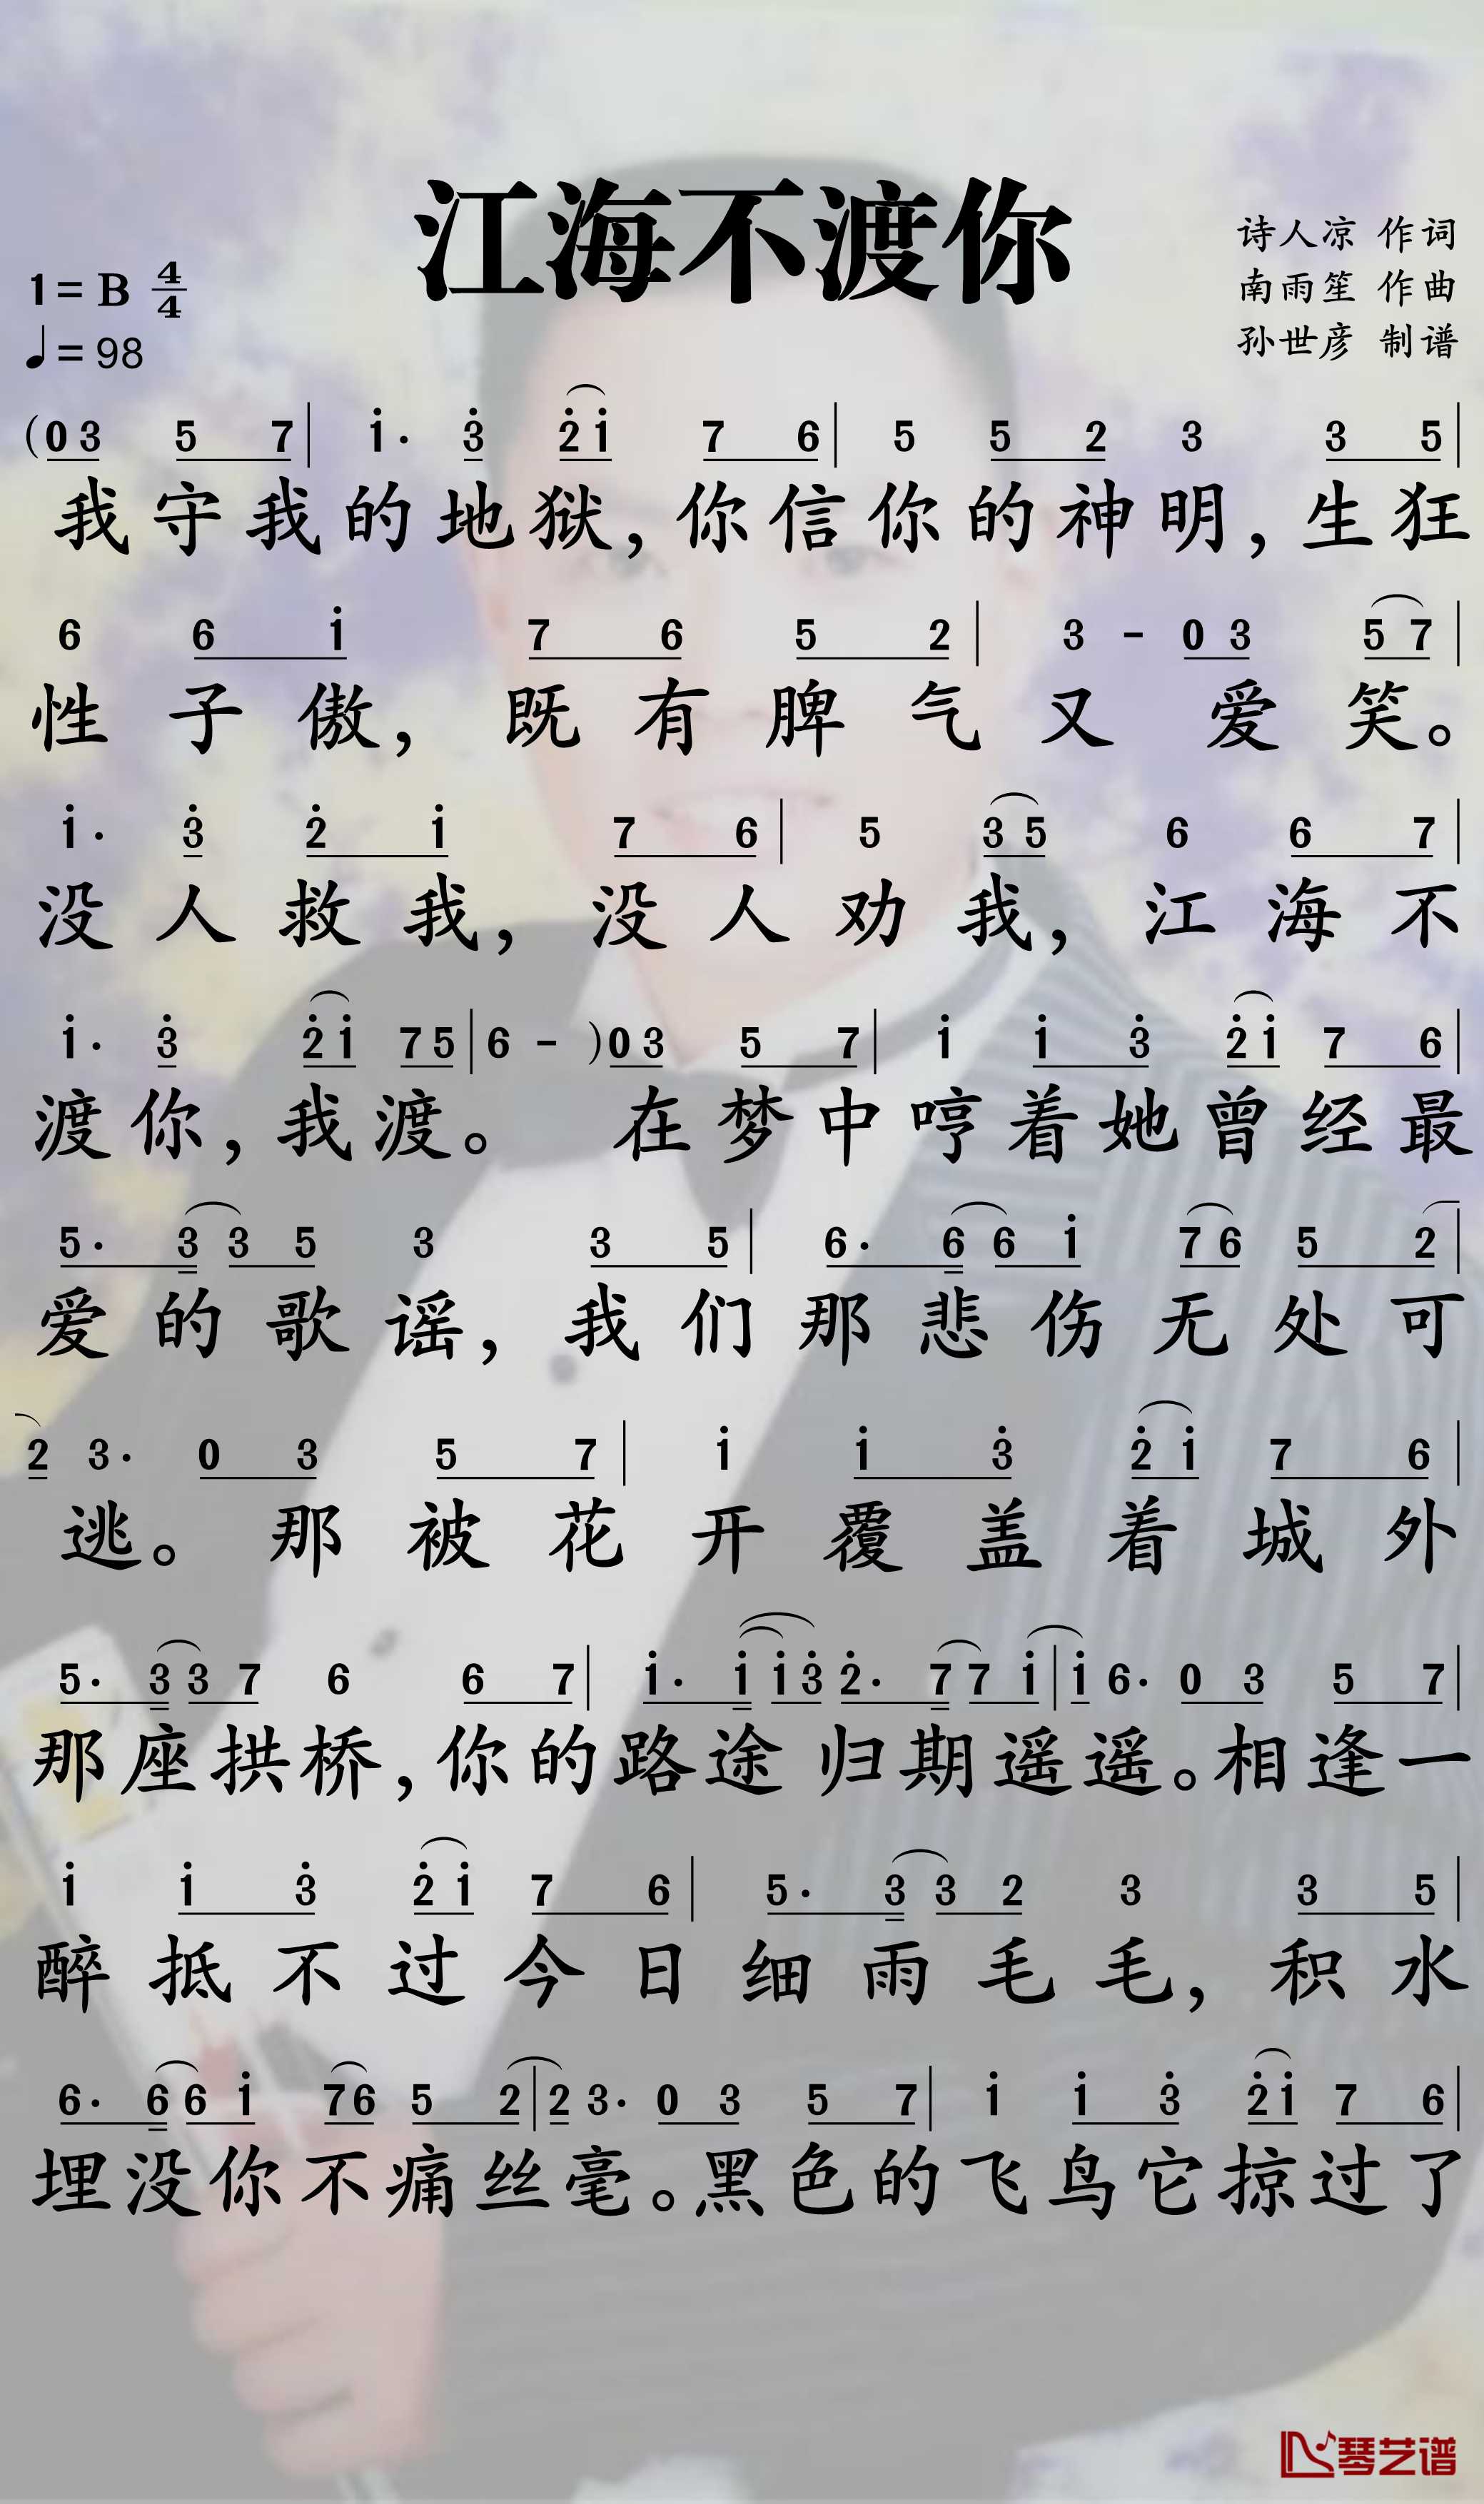 江海不渡你
诗人凉 作词
南雨笙 作曲
孙世彦 制谱
1=B 4/4
♩=98
(0 3 5 7 | i· 3̇ 2̇ i 7 6 | 5 5 2 3 3 5 |
我守我的地狱,你信你的神明,生狂
6 6 i 7 6 5 2 | 3 - 0 3 5 7 |
性子傲,既有脾气又爱笑。
i· 3̇ 2̇ i 7 6 | 5 3 5 6 6 7 |
没人救我,没人劝我,江海不
i· 3̇ 2̇ i 7 5 | 6 - ) 0 3 5 7 | i i 3̇ 2̇ i 7 6 |
渡你,我渡。 在梦中哼着她曾经最
5· 3 3 5 3 3 5 | 6· 6 6 i 7 6 5 2 |
爱的歌谣,我们那悲伤无处可
2 3· 0 3 5 7 | i i 3̇ 2̇ i 7 6 |
逃。那被花开覆盖着城外
5· 3 3 7 6 6 7 | i· i i 3̇ 2̇· 7 7 i | i 6· 0 3 5 7 |
那座拱桥,你的路途 归期遥遥。相逢一
i i 3̇ 2̇ i 7 6 | 5· 3 3 2 3 3 5 |
醉抵不过今日细雨毛毛,积水
6· 6 6 i 7 6 5 2 | 2 3· 0 3 5 7 | i i 3̇ 2̇ i 7 6 |
埋没你不痛丝毫。黑色的飞鸟它掠过了
琴艺谱